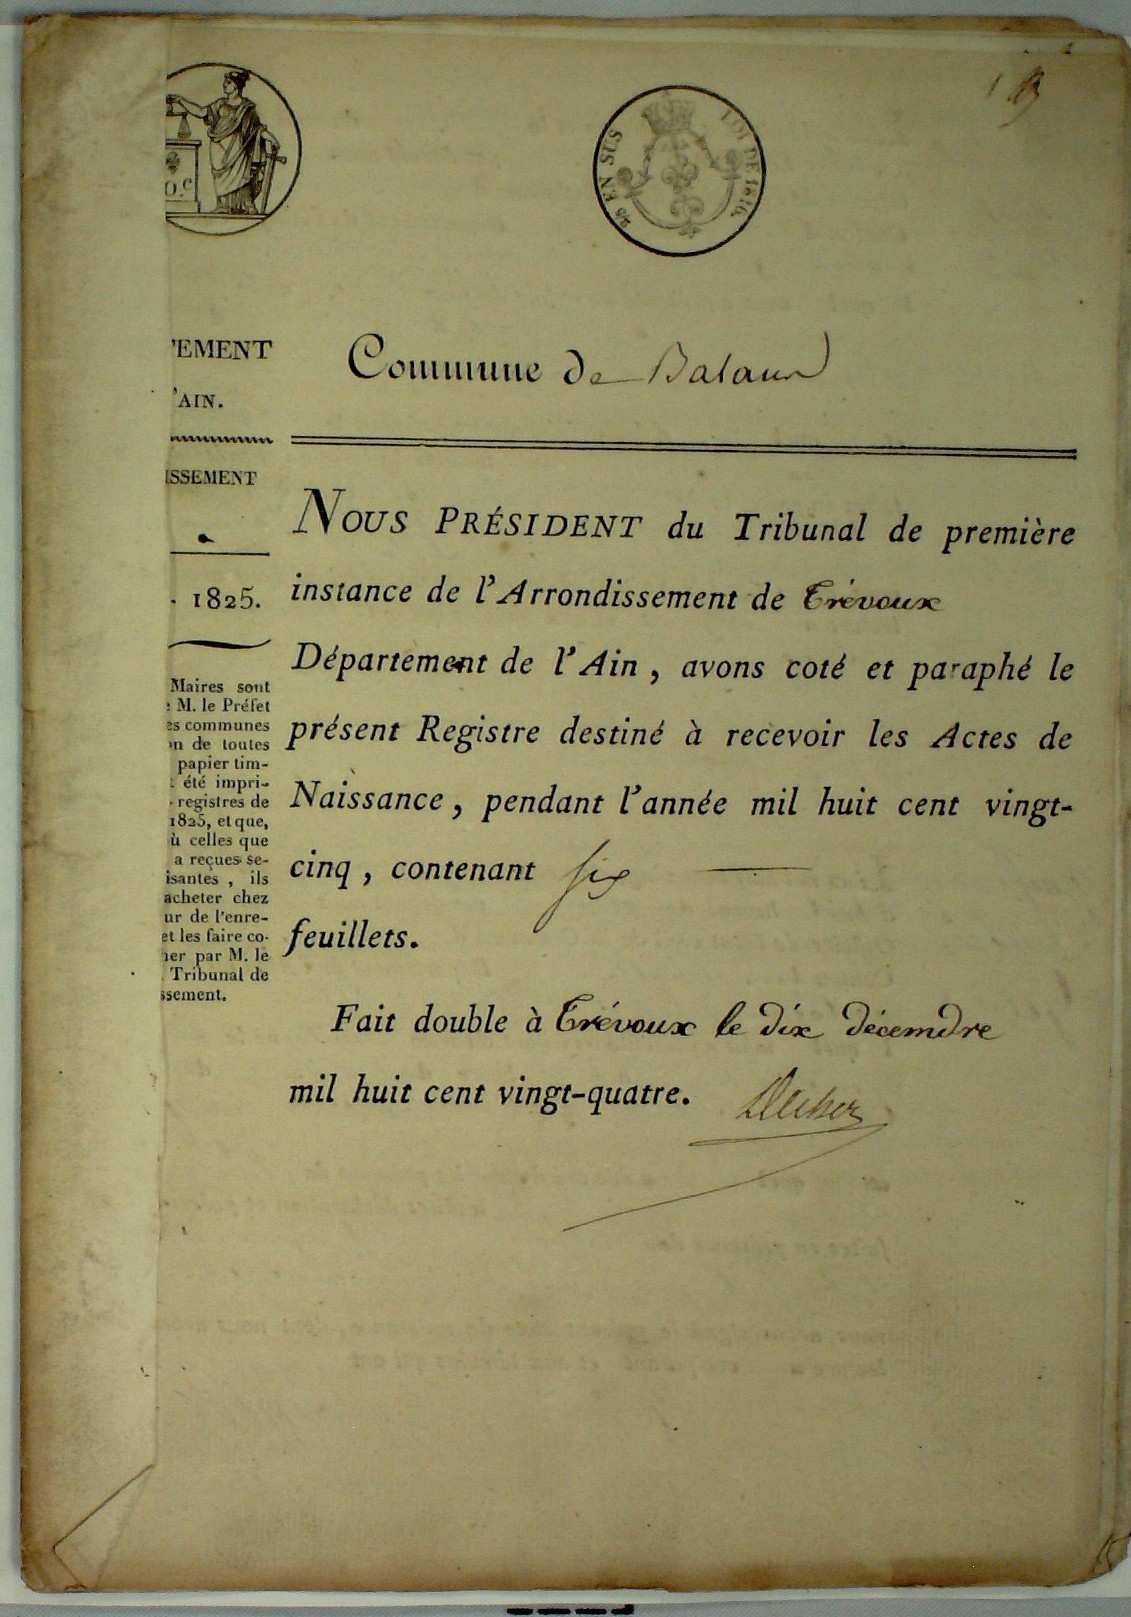 O.C
25 EN SUS
LOI DE 1816.
1
'EMENT
'AIN.
ISSEMENT
. 1825.
Maires sont
M. le Préfet
es communes
n de toutes
papier tim-
été impri-
registres de
1825, et que,
ù celles que
a reçues se-
isantes, ils
acheter chez
ur de l'enre-
et les faire co-
her par M. le
Tribunal de
ssement.
Commune de Balaun
NOUS PRÉSIDENT du Tribunal de première
instance de l'Arrondissement de Trévoux
Département de l'Ain, avons coté et paraphé le
présent Registre destiné à recevoir les Actes de
Naissance, pendant l'année mil huit cent vingt-
cinq, contenant six
feuillets.
Fait double à Trévoux le dix décembre
mil huit cent vingt-quatre.